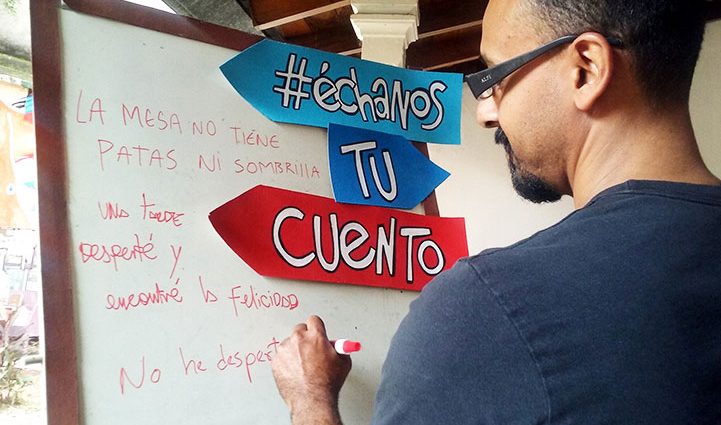 #échanos
TU
CUENTO
LA MESA NO TIENE
PATAS NI SOMBRILLA
UNA TARDE
DESPERTÉ Y
encontré la FELICIDAD
No he despert